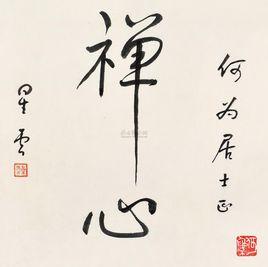 何为居士正
禅心
星云